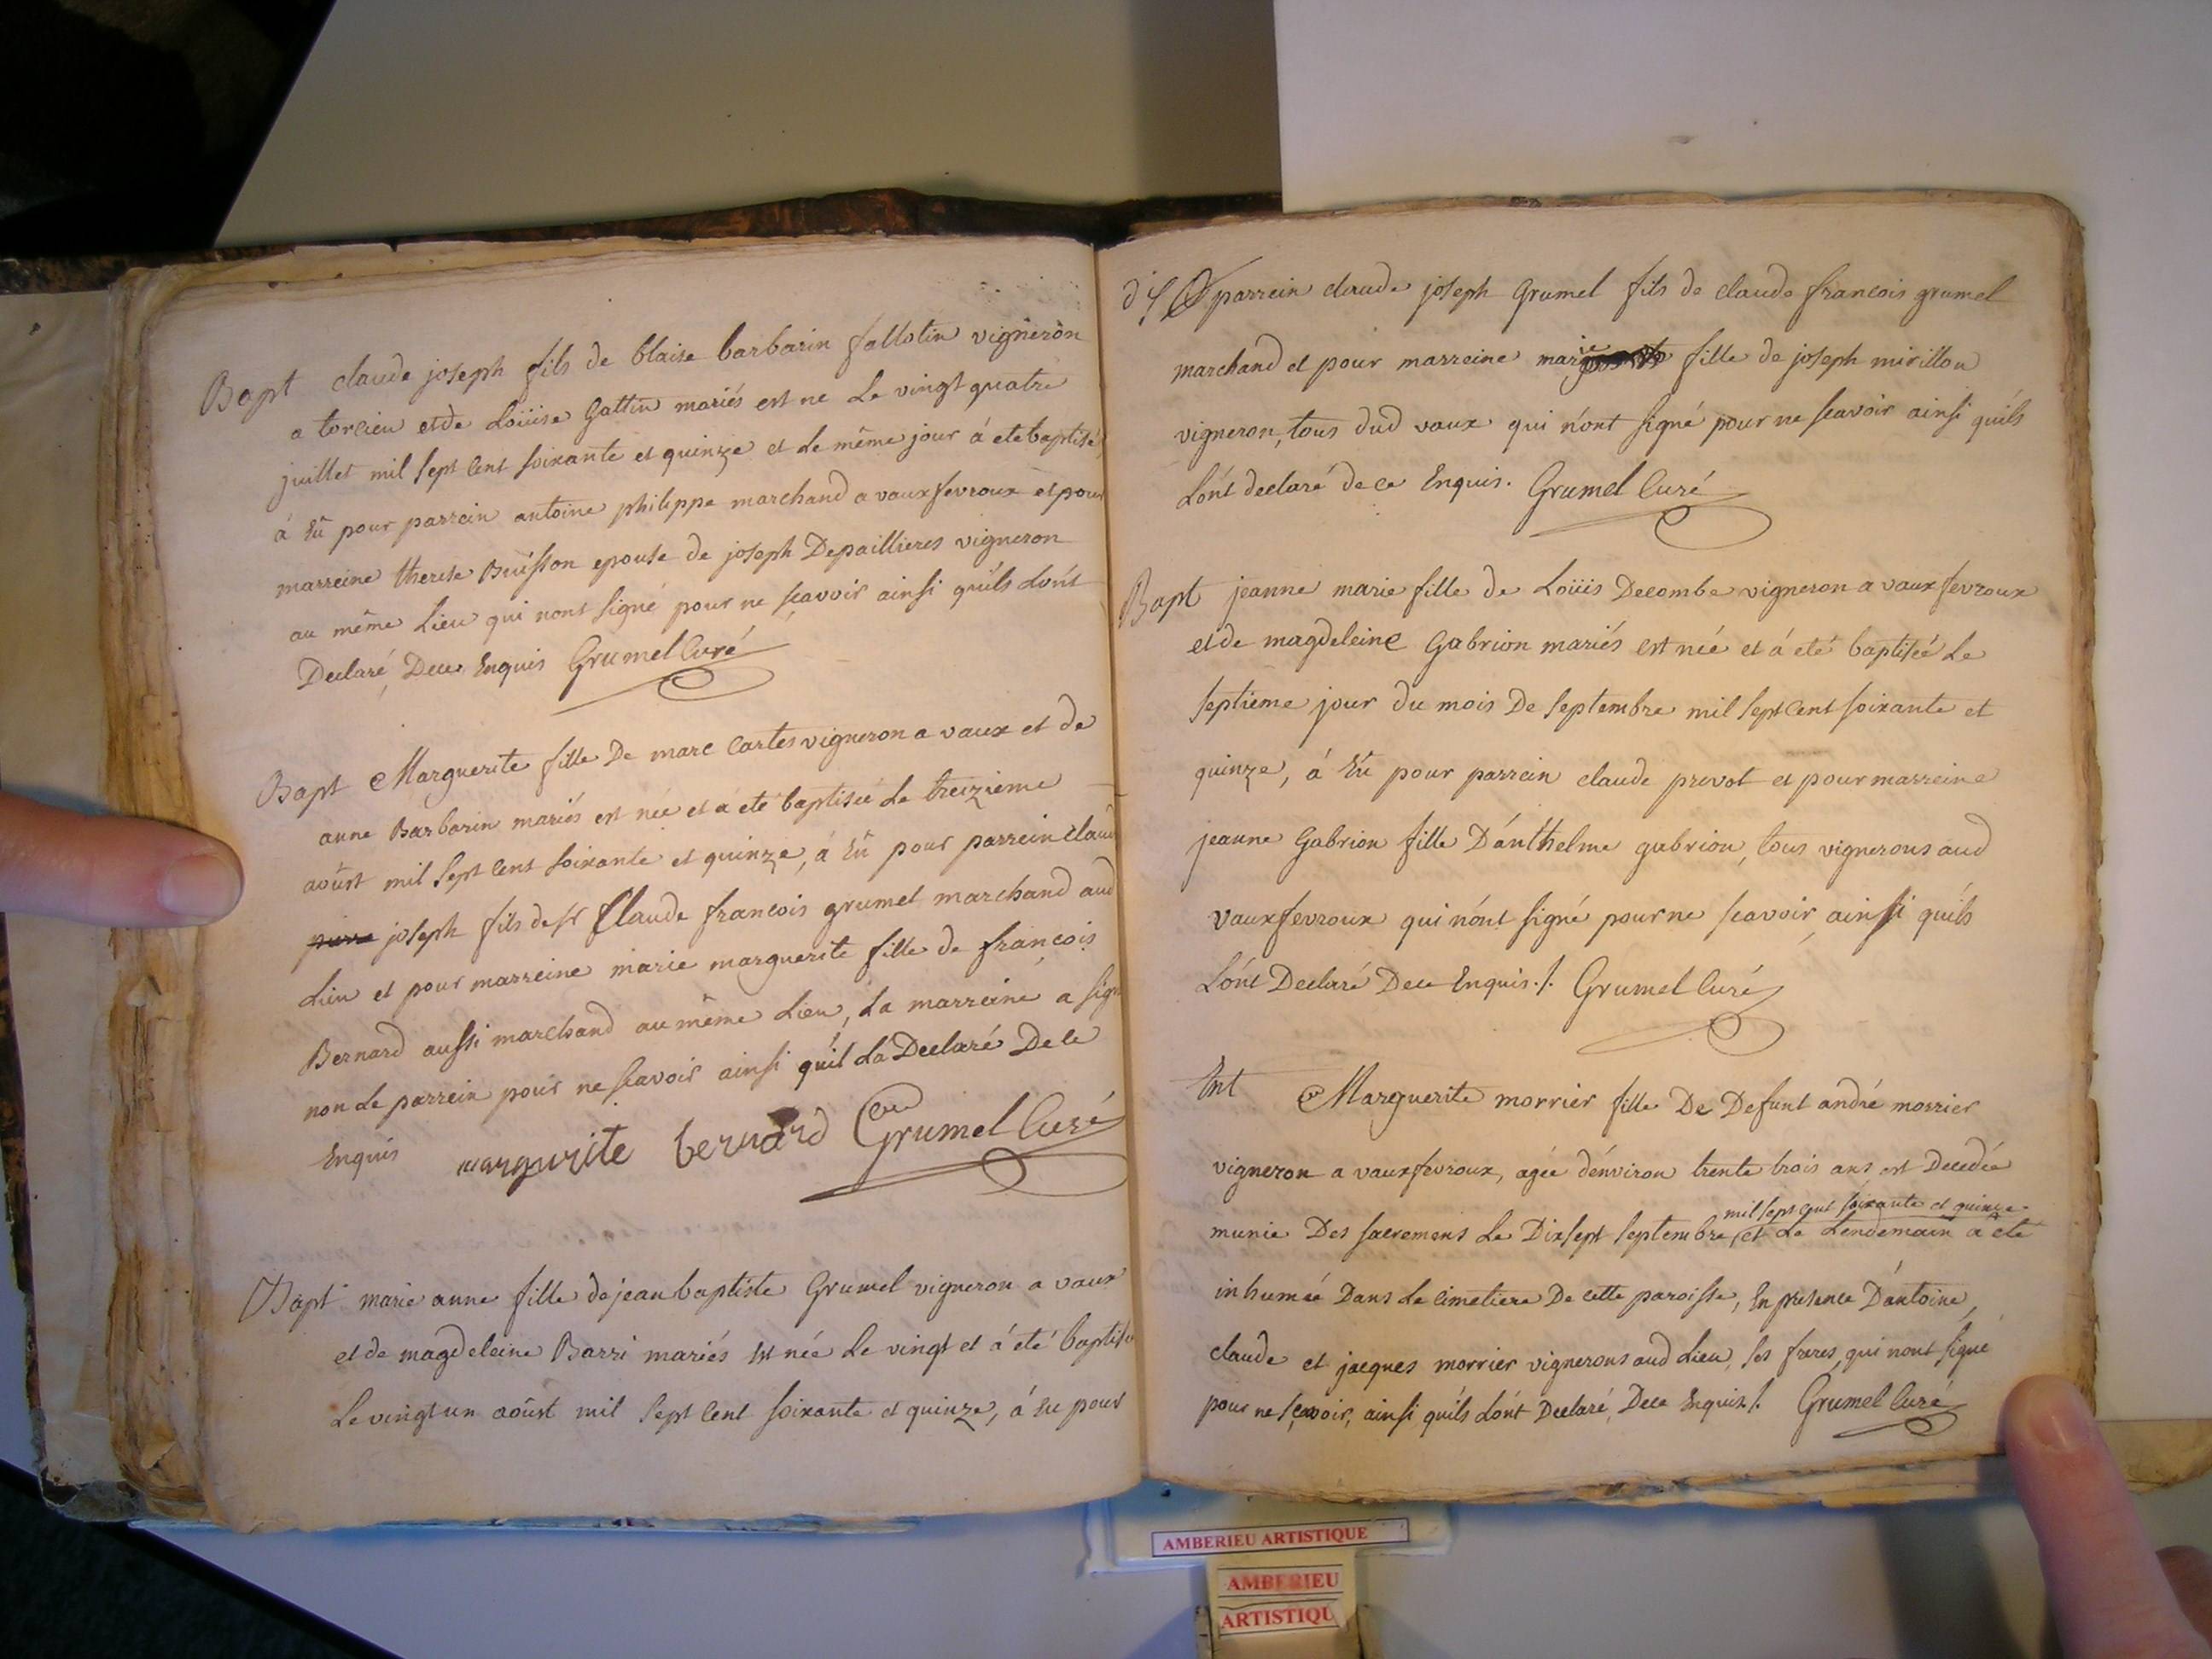 Bapt claude joseph fils de blaise barbarin fallotin vigneron
a torcieu et de Loüise Gattin mariés est ne Le vingt quatre
juillet mil sept cent soixante et quinze et Le même jour á eté baptisé,
á Eû pour parrein antoine philippe marchand a vaux fevroux et pour
marreine therese Buisson epouse de joseph Depaillieres vigneron
au même Lieu qui nont signé pour ne scavoir ainsi quils Lont
Declaré, Dece Enquis Grumel Curé
Bapt Marguerite fille De marc Cartes vigneron a vaux et de
anne Barbarin mariés est née et a eté baptisée Le treizieme
aoûst mil sept cent soixante et quinze, á Eû pour parrein
joseph fils de sr Claude francois grumel marchand aud
Lieu et pour marreine marie marguerite fille de francois
Bernard aussi marchand au même Lieu, La marreine a
non Le parrein pour ne scavoir ainsi quil La Declaré De ce
Enquis margurite bernard Grumel Curé
Bapt marie anne fille de jean baptiste Grumel vigneron a vaux
et de magdeleine Barri mariés Est née Le vingt et á eté
Le vingt un aoûst mil sept cent soixante et quinze, á Eu pour
parrein claude joseph Grumel fils de claude francois grumel
marchand et pour marreine marie fille de joseph mirillon
vigneron, tous dud vaux qui nont signé pour ne scavoir ainsi quils
Lont declaré de ce Enquis. Grumel Curé
Bapt jeanne marie fille de Loüis Decombe vigneron a vaux fevroux
et de magdeleine Gabrion mariés est née et á eté baptisée Le
septieme jour du mois De septembre mil sept cent soixante et
quinze, á Eû pour parrein claude prevot et pour marreine
jeanne Gabrion fille D'anthelme gabrion, tous vignerons aud
vaux fevroux qui nont signé pour ne scavoir, ainsi quils
Lont Declaré Dece Enquis./. Grumel Curé
Ent Marguerite morrier fille De Defunt andré morrier
vigneron a vaux fevroux, agée d'environ trente trois ans est Decedée
mil sept cent soixante et quinze
munie Des sacremens Le Dix sept septembre, et Le Lendemain a eté
inhumée Dans Le cimetiere De cette paroisse, En presence D'antoine,
claude et jacques morrier vignerons aud Lieu, ses freres, qui nont signé
pour ne scavoir, ainsi quils Lont Declaré, Dece Enquis./. Grumel Curé
AMBERIEU ARTISTIQUE
AMBERIEU
ARTISTIQU